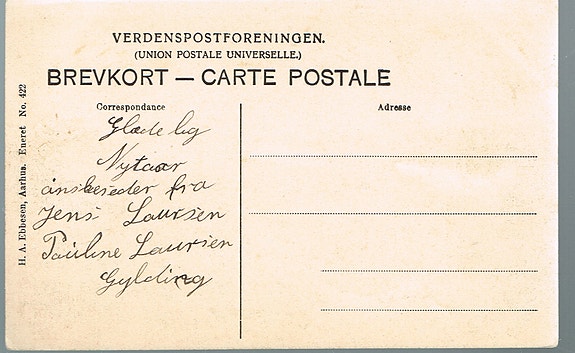 VERDENSPOSTFORENINGEN.
(UNION POSTALE UNIVERSELLE.)
BREVKORT — CARTE POSTALE
Correspondance
Adresse
Glædelig
Nytaar
ønskeseder fra
Jens Laursen
Pauline Laursen
Gylding
H. A. Ebbesen, Aarhus. Eneret No. 422